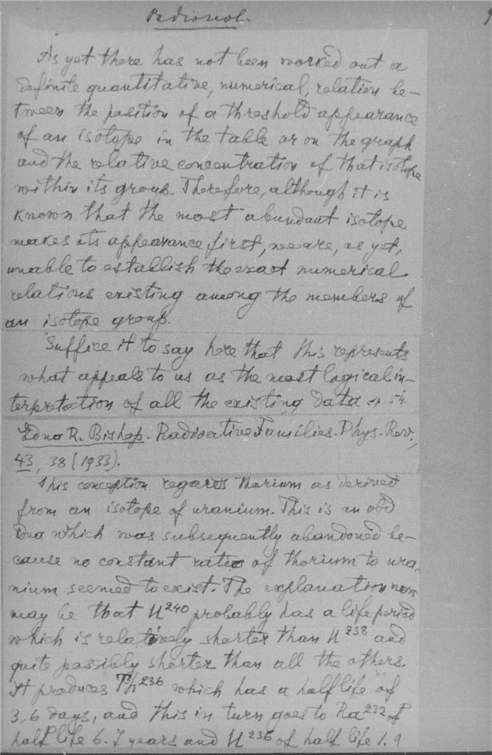 As yet there has not been worked out a
definite quantitative, numerical, relation be-
tween the position of a threshold appearance
of an isotope in the table or on the graph
and the relative concentration of that isotope
within its group. Therefore, although it is
known that the most abundant isotope
makes its appearance first, we are, as yet,
unable to establish the exact numerical
relations existing among the members of
an isotope group.
Suffice it to say here that this represents
what appeals to us as the most logical in-
terpretation of all the existing data
Edna R. Bishop. Radioactive Families. Phys. Rev,
43, 38 (1933).
This conception regards thorium as derived
from an isotope of uranium. This is an old
idea which was subsequently abandoned be-
cause no constant ratio of thorium to ura-
nium seemed to exist. The explanation now
may be that U240 probably has a life period
which is relatively shorter than U238 and
quite possibly shorter than all the others.
It produces Th236 which has a half life of
3.6 days, and this in turn goes to Ra232 of
half life 6.7 years and U236 of half life 1.9